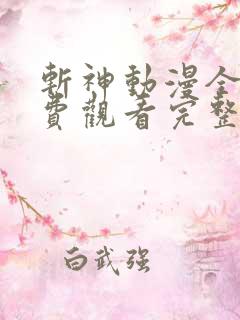 斬神動漫全
費觀看完整
白武强